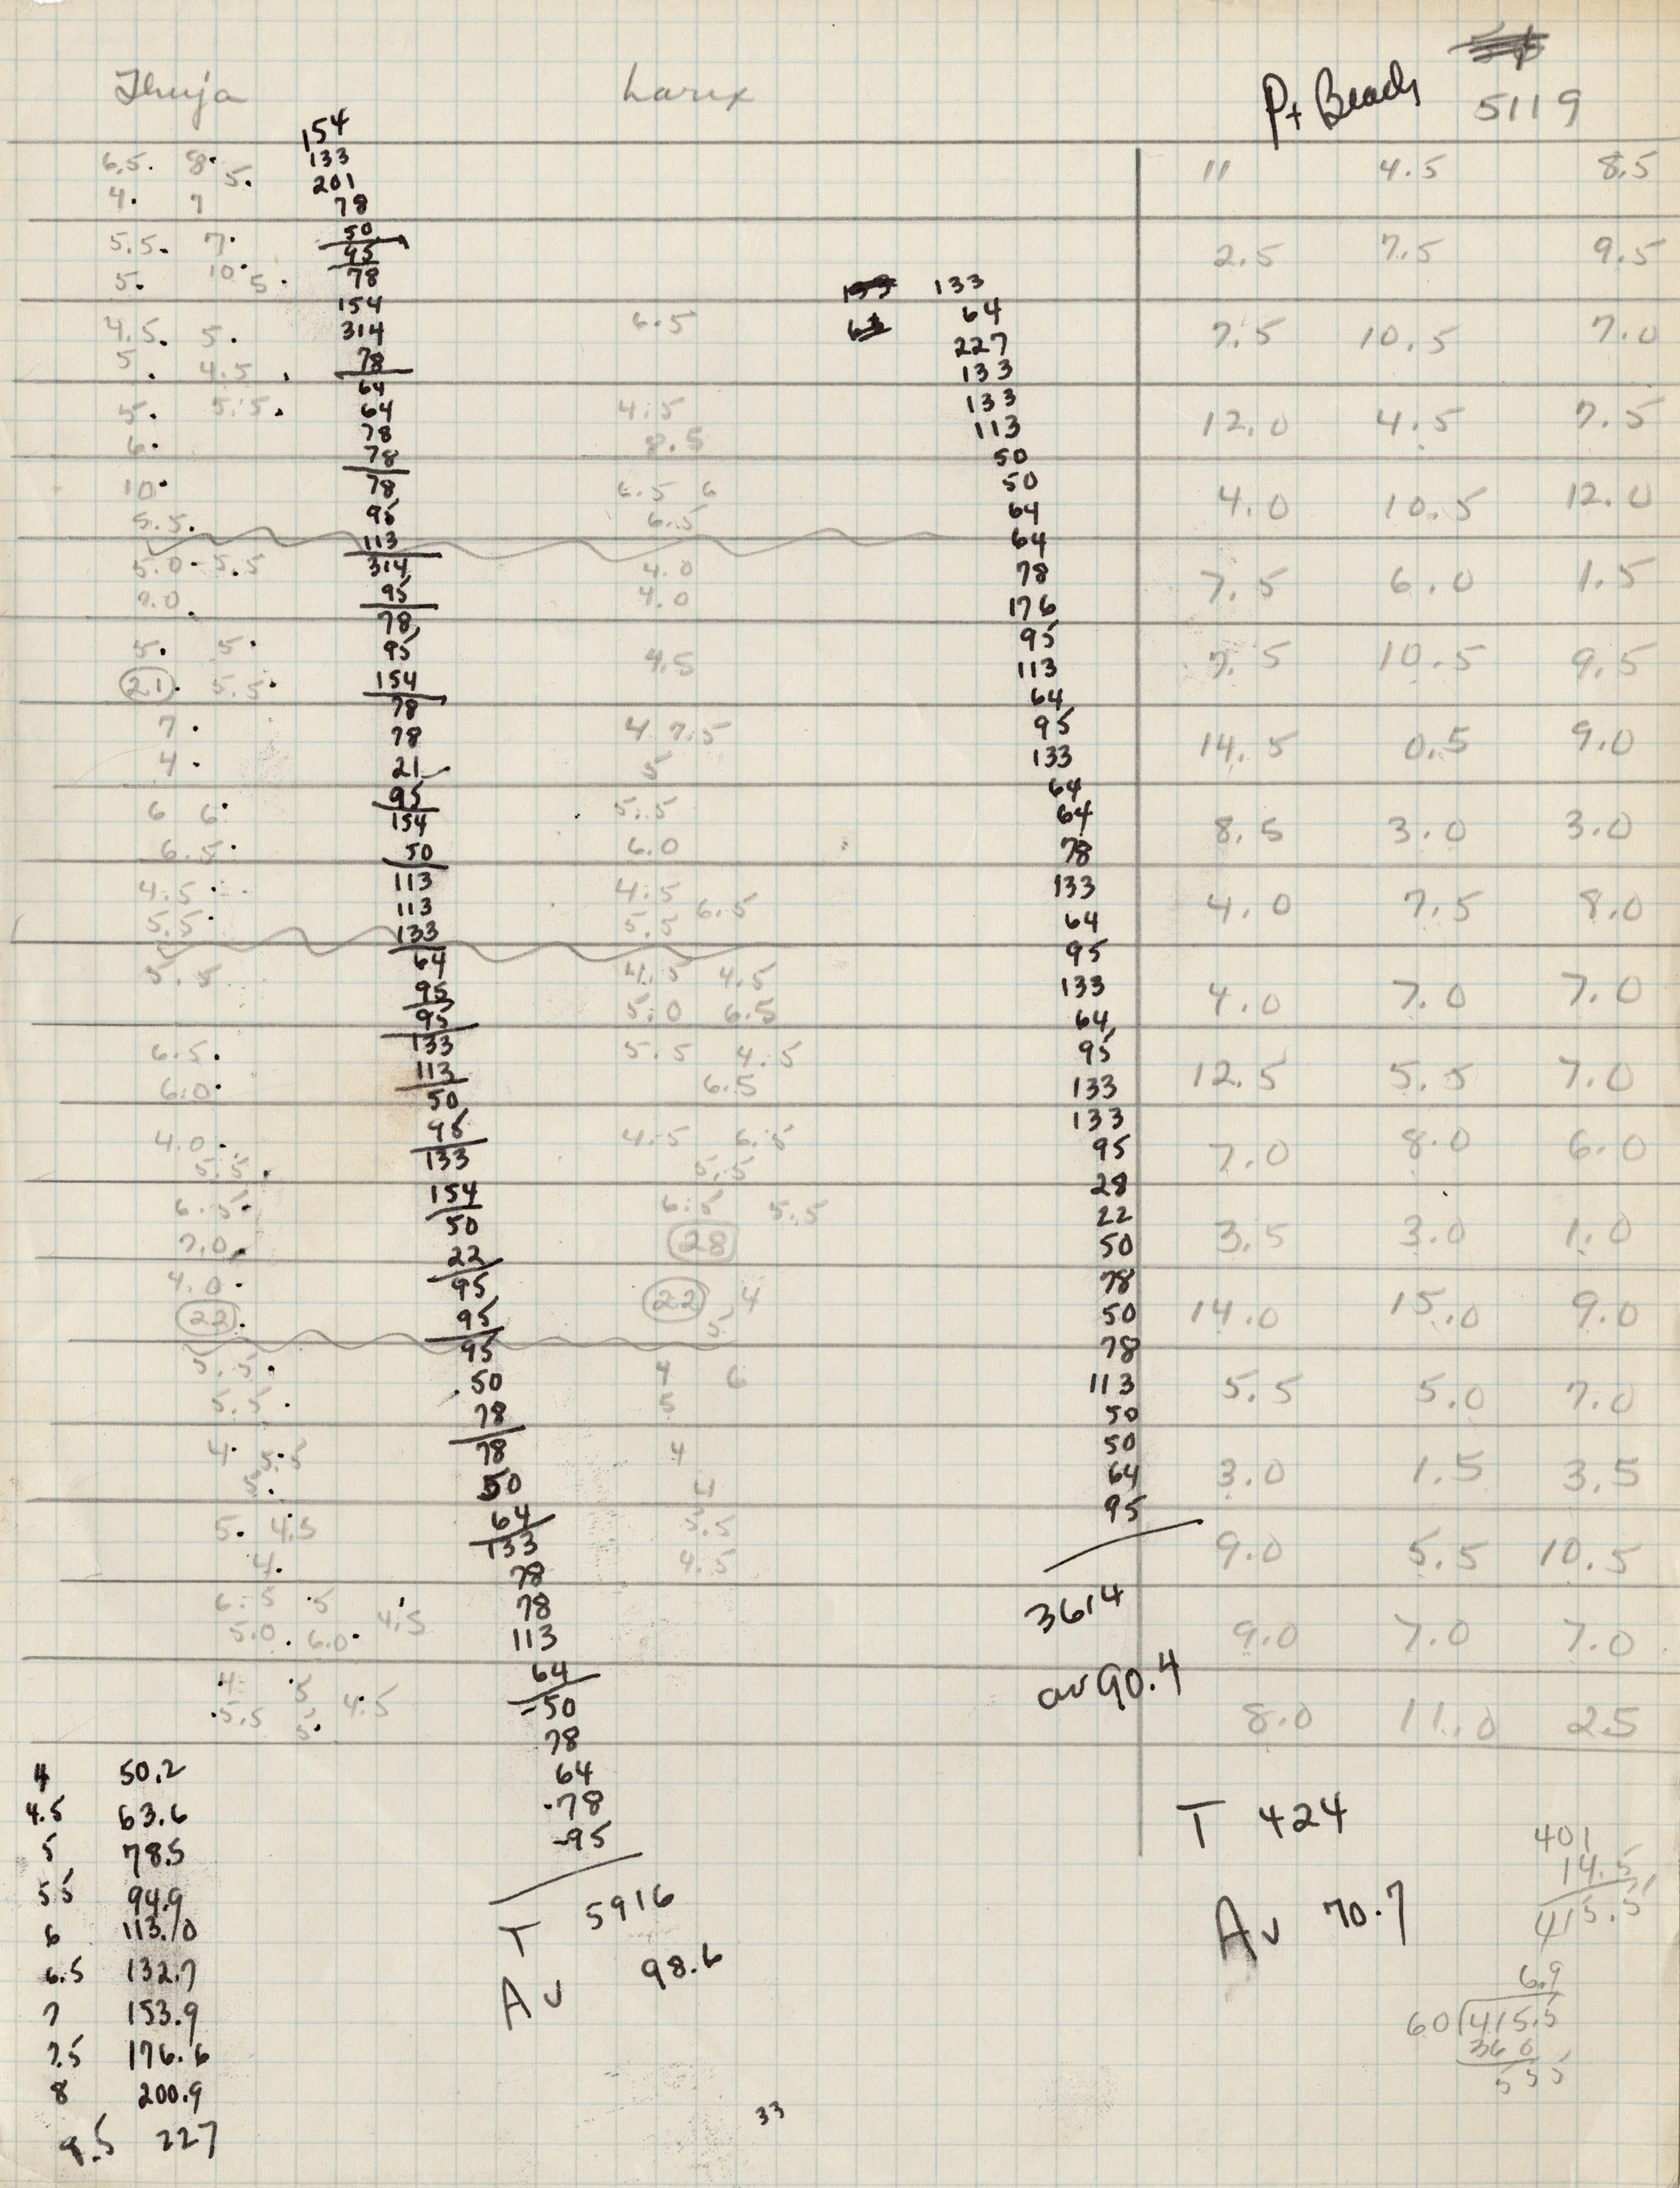 Thuja Larix Pt Beach 5119
154
6.5. 8. 5. 133 11 4.5 8.5
201
4. 7 78
5.5. 7. 50 2.5 7.5 9.5
95
5. 10. 5. 78
133 133
154
64
4.5. 5. 314 6.5 7.5 10.5 7.0
227
5. 4.5. 78
133
64
5. 5.5. 64 4.5 133 12.0 4.5 7.5
6. 78 8.5 113
78 50
10. 78 6.5 6 50 4.0 10.5 12.0
5.5. 95 6.5 64
113 64
5.0. 5.5 314 4.0 78 7.5 6.0 1.5
7.0. 95 4.0 176
78
5. 5. 95 4.5 95 7.5 10.5 9.5
113
21. 5.5. 154 64
78
7. 78 4 7.5 95 14.5 0.5 9.0
4. 21 5 133
95 64
6 6. 154 5.5 64 8.5 3.0 3.0
6.5. 50 6.0 78
4.5. 113 4.5 6.5 133 4.0 7.5 8.0
5.5. 113 5.5 64
133 95
5.5 64 4.5 4.5 133 4.0 7.0 7.0
95 5.0 6.5
95 64
6.5. 133 5.5 4.5 95 12.5 5.5 7.0
6.0. 113 6.5 133
50 133
4.0. 95 4.5 6.5 95 7.0 8.0 6.0
5.5. 133 5.5 28
6.5. 154 6.5 5.5 22 3.5 3.0 1.0
7.0. 50 28 50
22
4.0. 95 22 4 78 14.0 15.0 9.0
22. 95 5 50
95 78
5.5. 50 4 6 113 5.5 5.0 7.0
5.5. 78 5 50
4. 5.5 78 4 50 3.0 1.5 3.5
5. 50 4 64
5. 4.5 64 5.5 95
4. 133 4.5 9.0 5.5 10.5
78
6.5 .5 4.5 78 3614 9.0 7.0 7.0
5.0. 6.0. 113
4. .5 4.5 64 av 90.4
.5.5 5. 50 8.0 11.0 2.5
78
4 50.2 64
4.5 63.6 78 T 424
5 78.5 95 401
14.5
5.5 94.9 T 5916 Av 70.7 415.5
6 113.10
6.5 132.7 Av 98.6 6.9
7 153.9 60 415.5
7.5 176.6 360
8 200.9 555
8.5 227 33